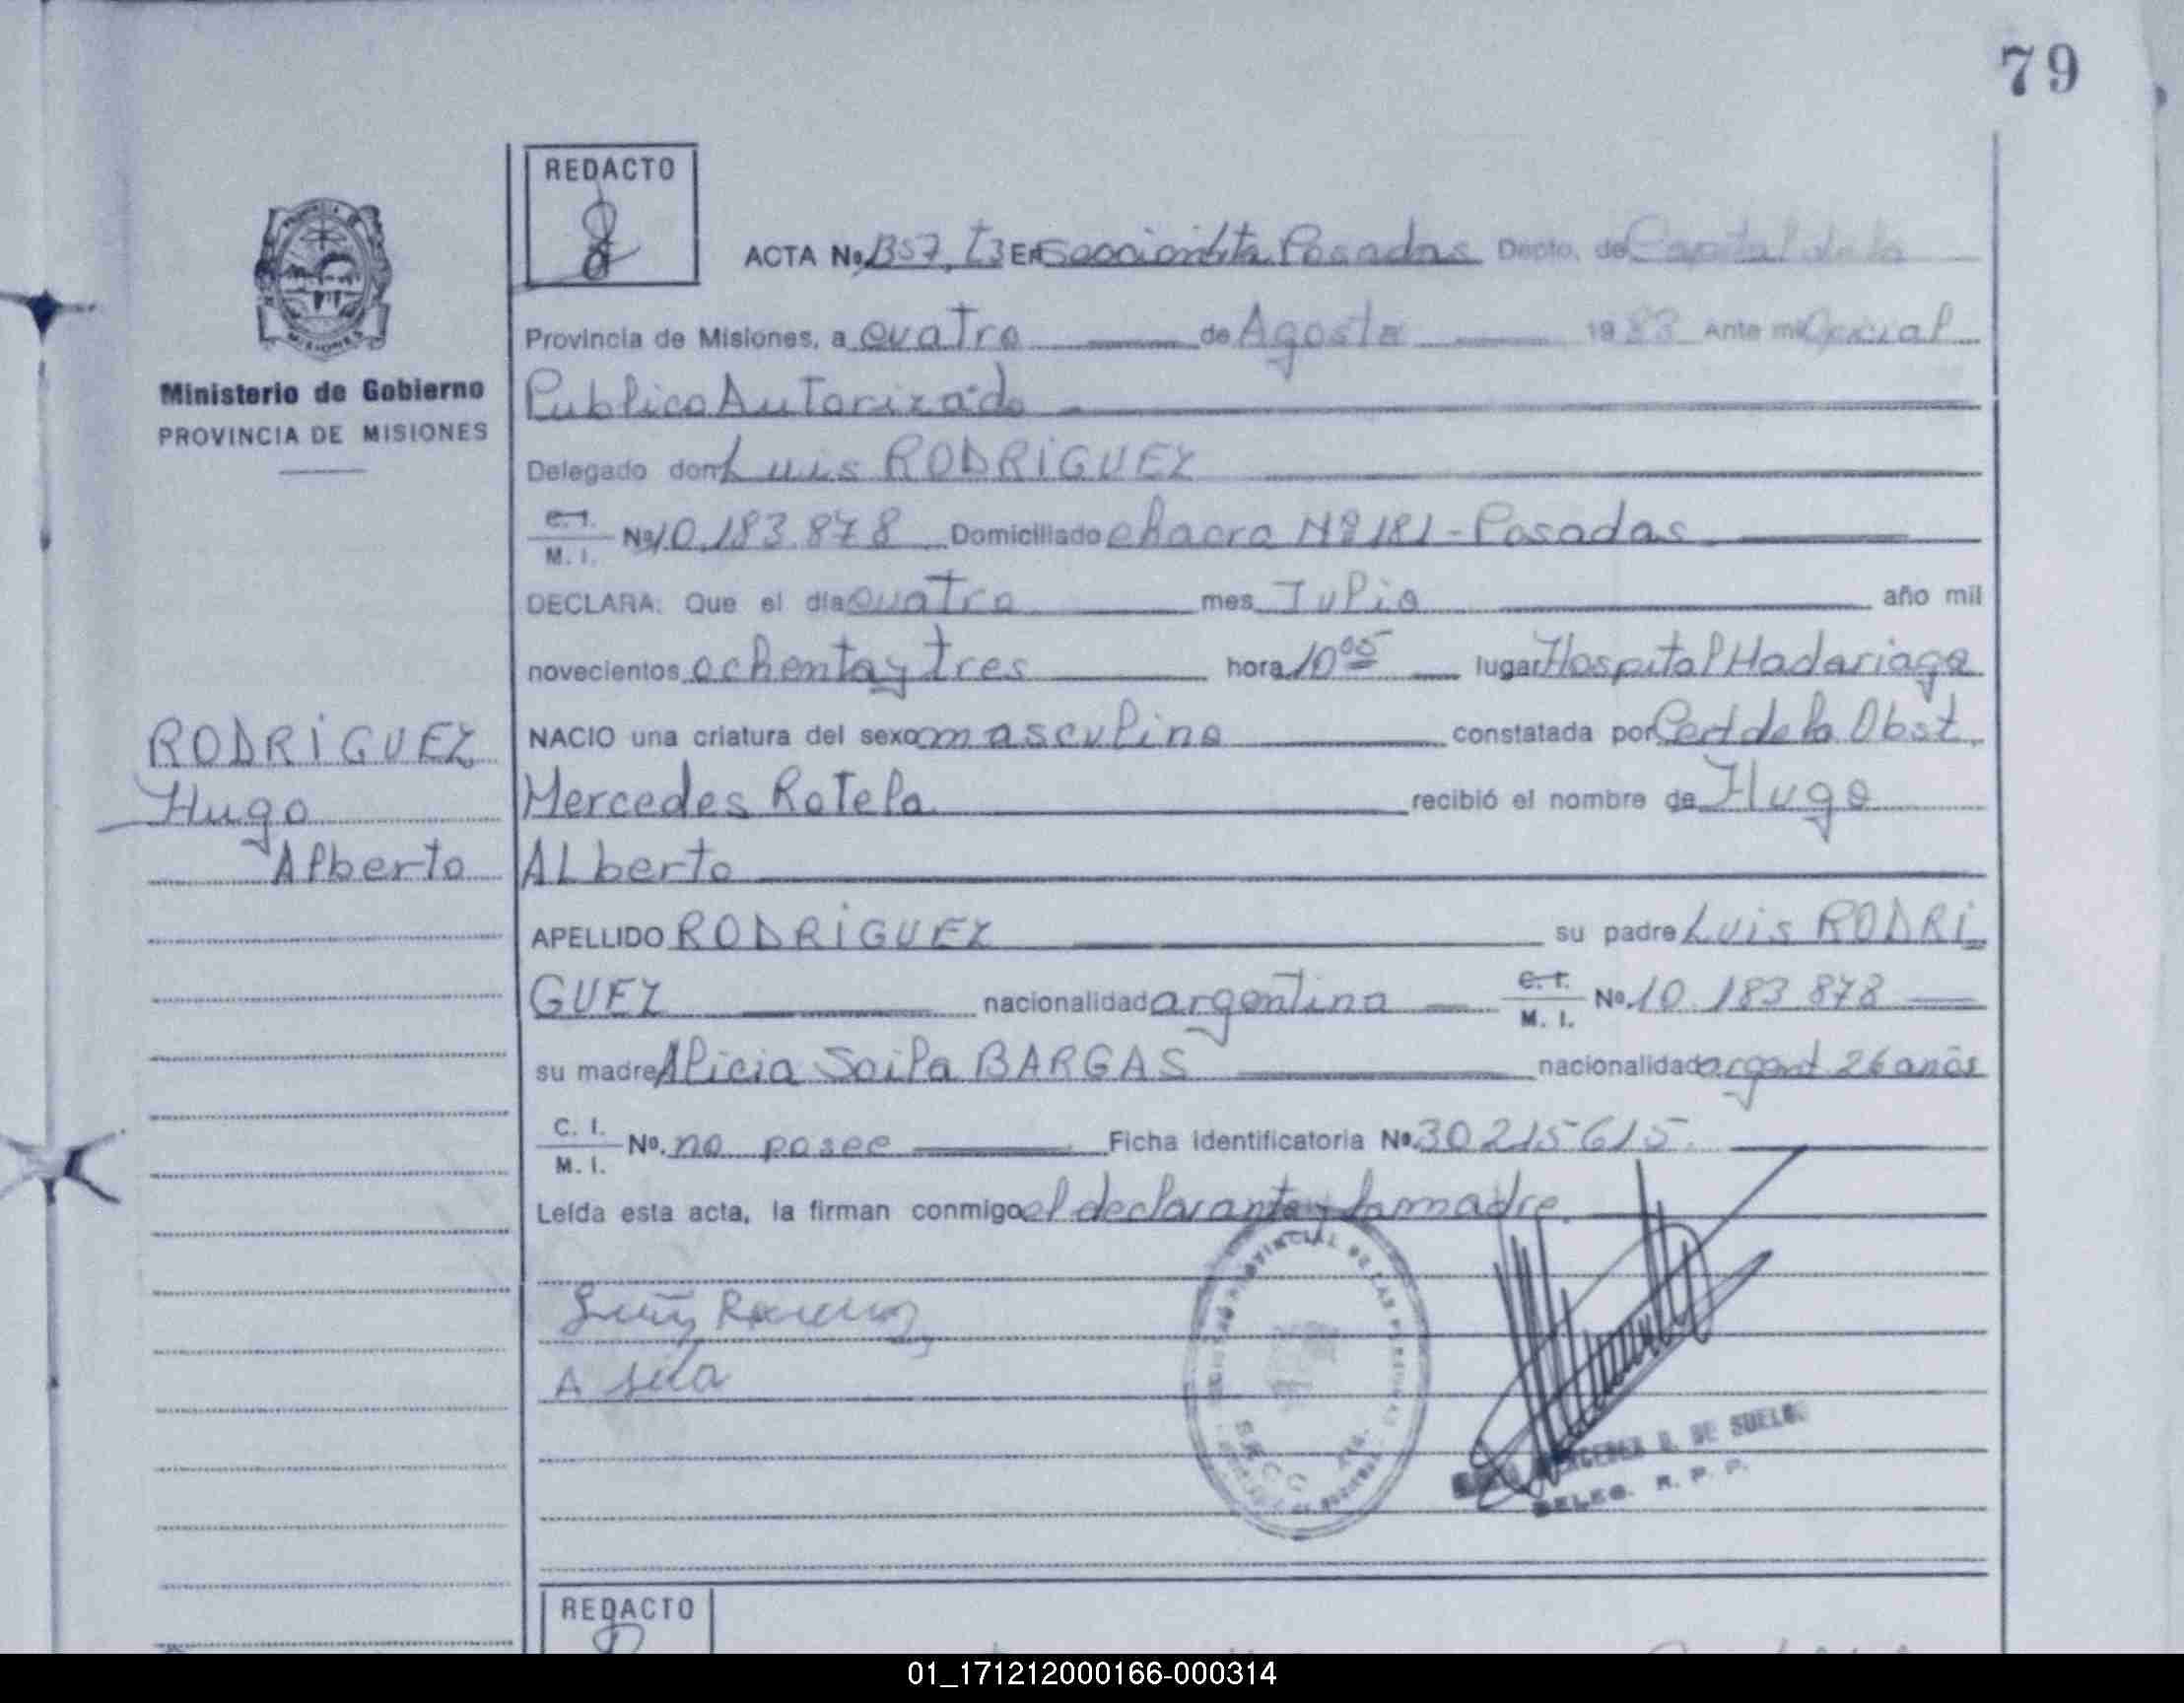 79
REDACTO
ACTA No. 1357, t3 En Sección 6ta. Posadas Depto. de Capital de la
Provincia de Misiones, a cuatro de Agosto 1983 Ante mi Oficial
Publico Autorizado
Delegado don Luis RODRIGUEZ
Ministerio de Gobierno
PROVINCIA DE MISIONES
C. I.
M. I. No. 10.183.878 Domiciliado chacra Nº 181 - Posadas
DECLARA: Que el día cuatro mes Julio año mil
novecientos ochenta y tres hora 10 05 lugar Hospital Madariaga
NACIO una criatura del sexo masculino constatada por Cert de la Obst.
Mercedes Rotela recibió el nombre de Hugo
ALberto
RODRIGUEZ
Hugo
Alberto
APELLIDO RODRIGUEZ su padre Luis RODRI
GUEZ nacionalidad argentina C. I. M. I. No. 10.183.878
su madre Alicia Soila BARGAS nacionalidad argent 26 años
C. I.
M. I. No. no posee Ficha identificatoria No. 30215615
Leída esta acta, la firman conmigo el declarante y la madre.
A
DE SUELO
DELEG. R. P. P.
REDACTO
01_171212000166-000314